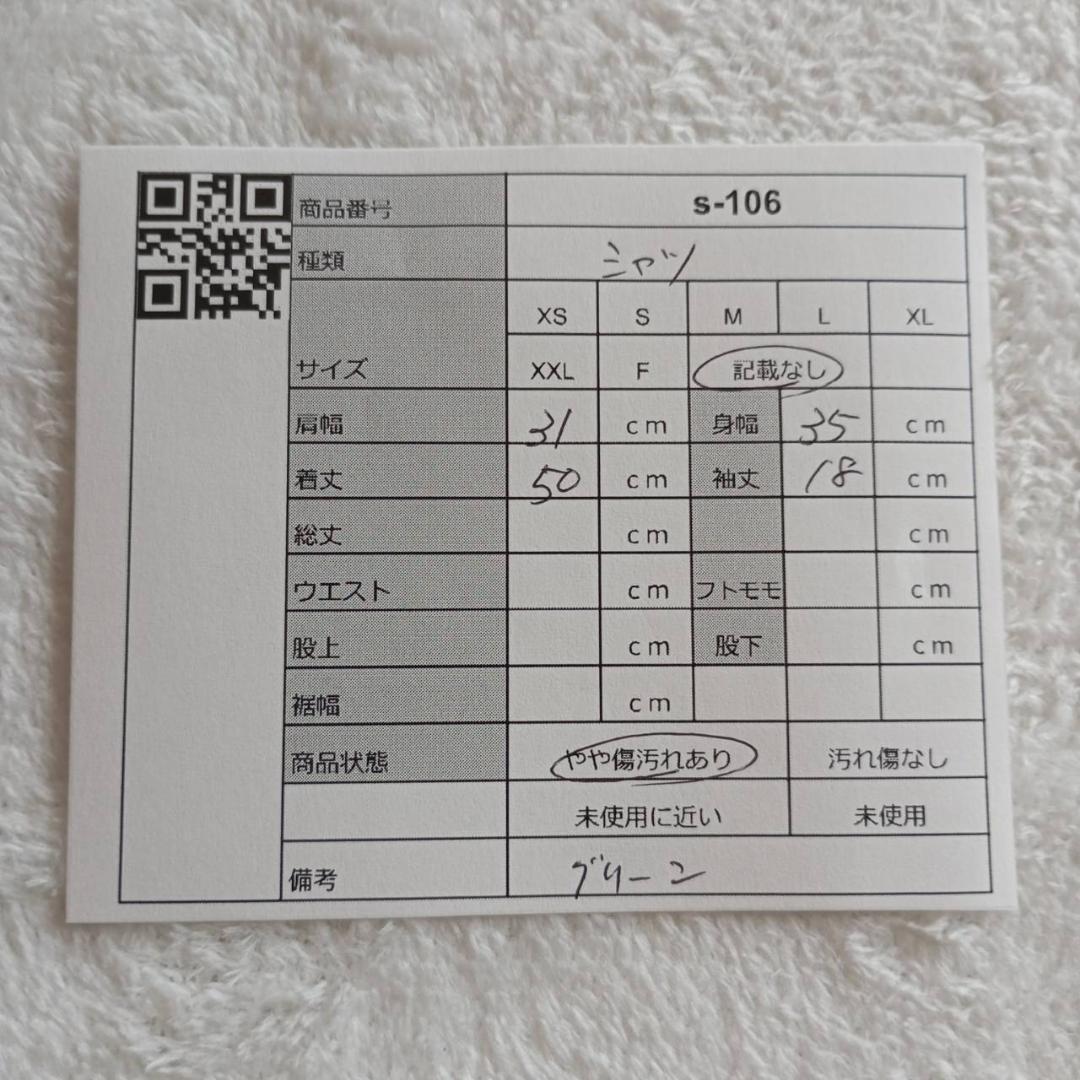 商品番号 s-106
種類 シャツ
XS S M L XL
サイズ XXL F 記載なし
肩幅 31 cm 身幅 35 cm
着丈 50 cm 袖丈 18 cm
総丈 cm cm
ウエスト cm フトモモ cm
股上 cm 股下 cm
裾幅 cm
商品状態 やや傷汚れあり 汚れ傷なし
未使用に近い 未使用
備考 グリーン